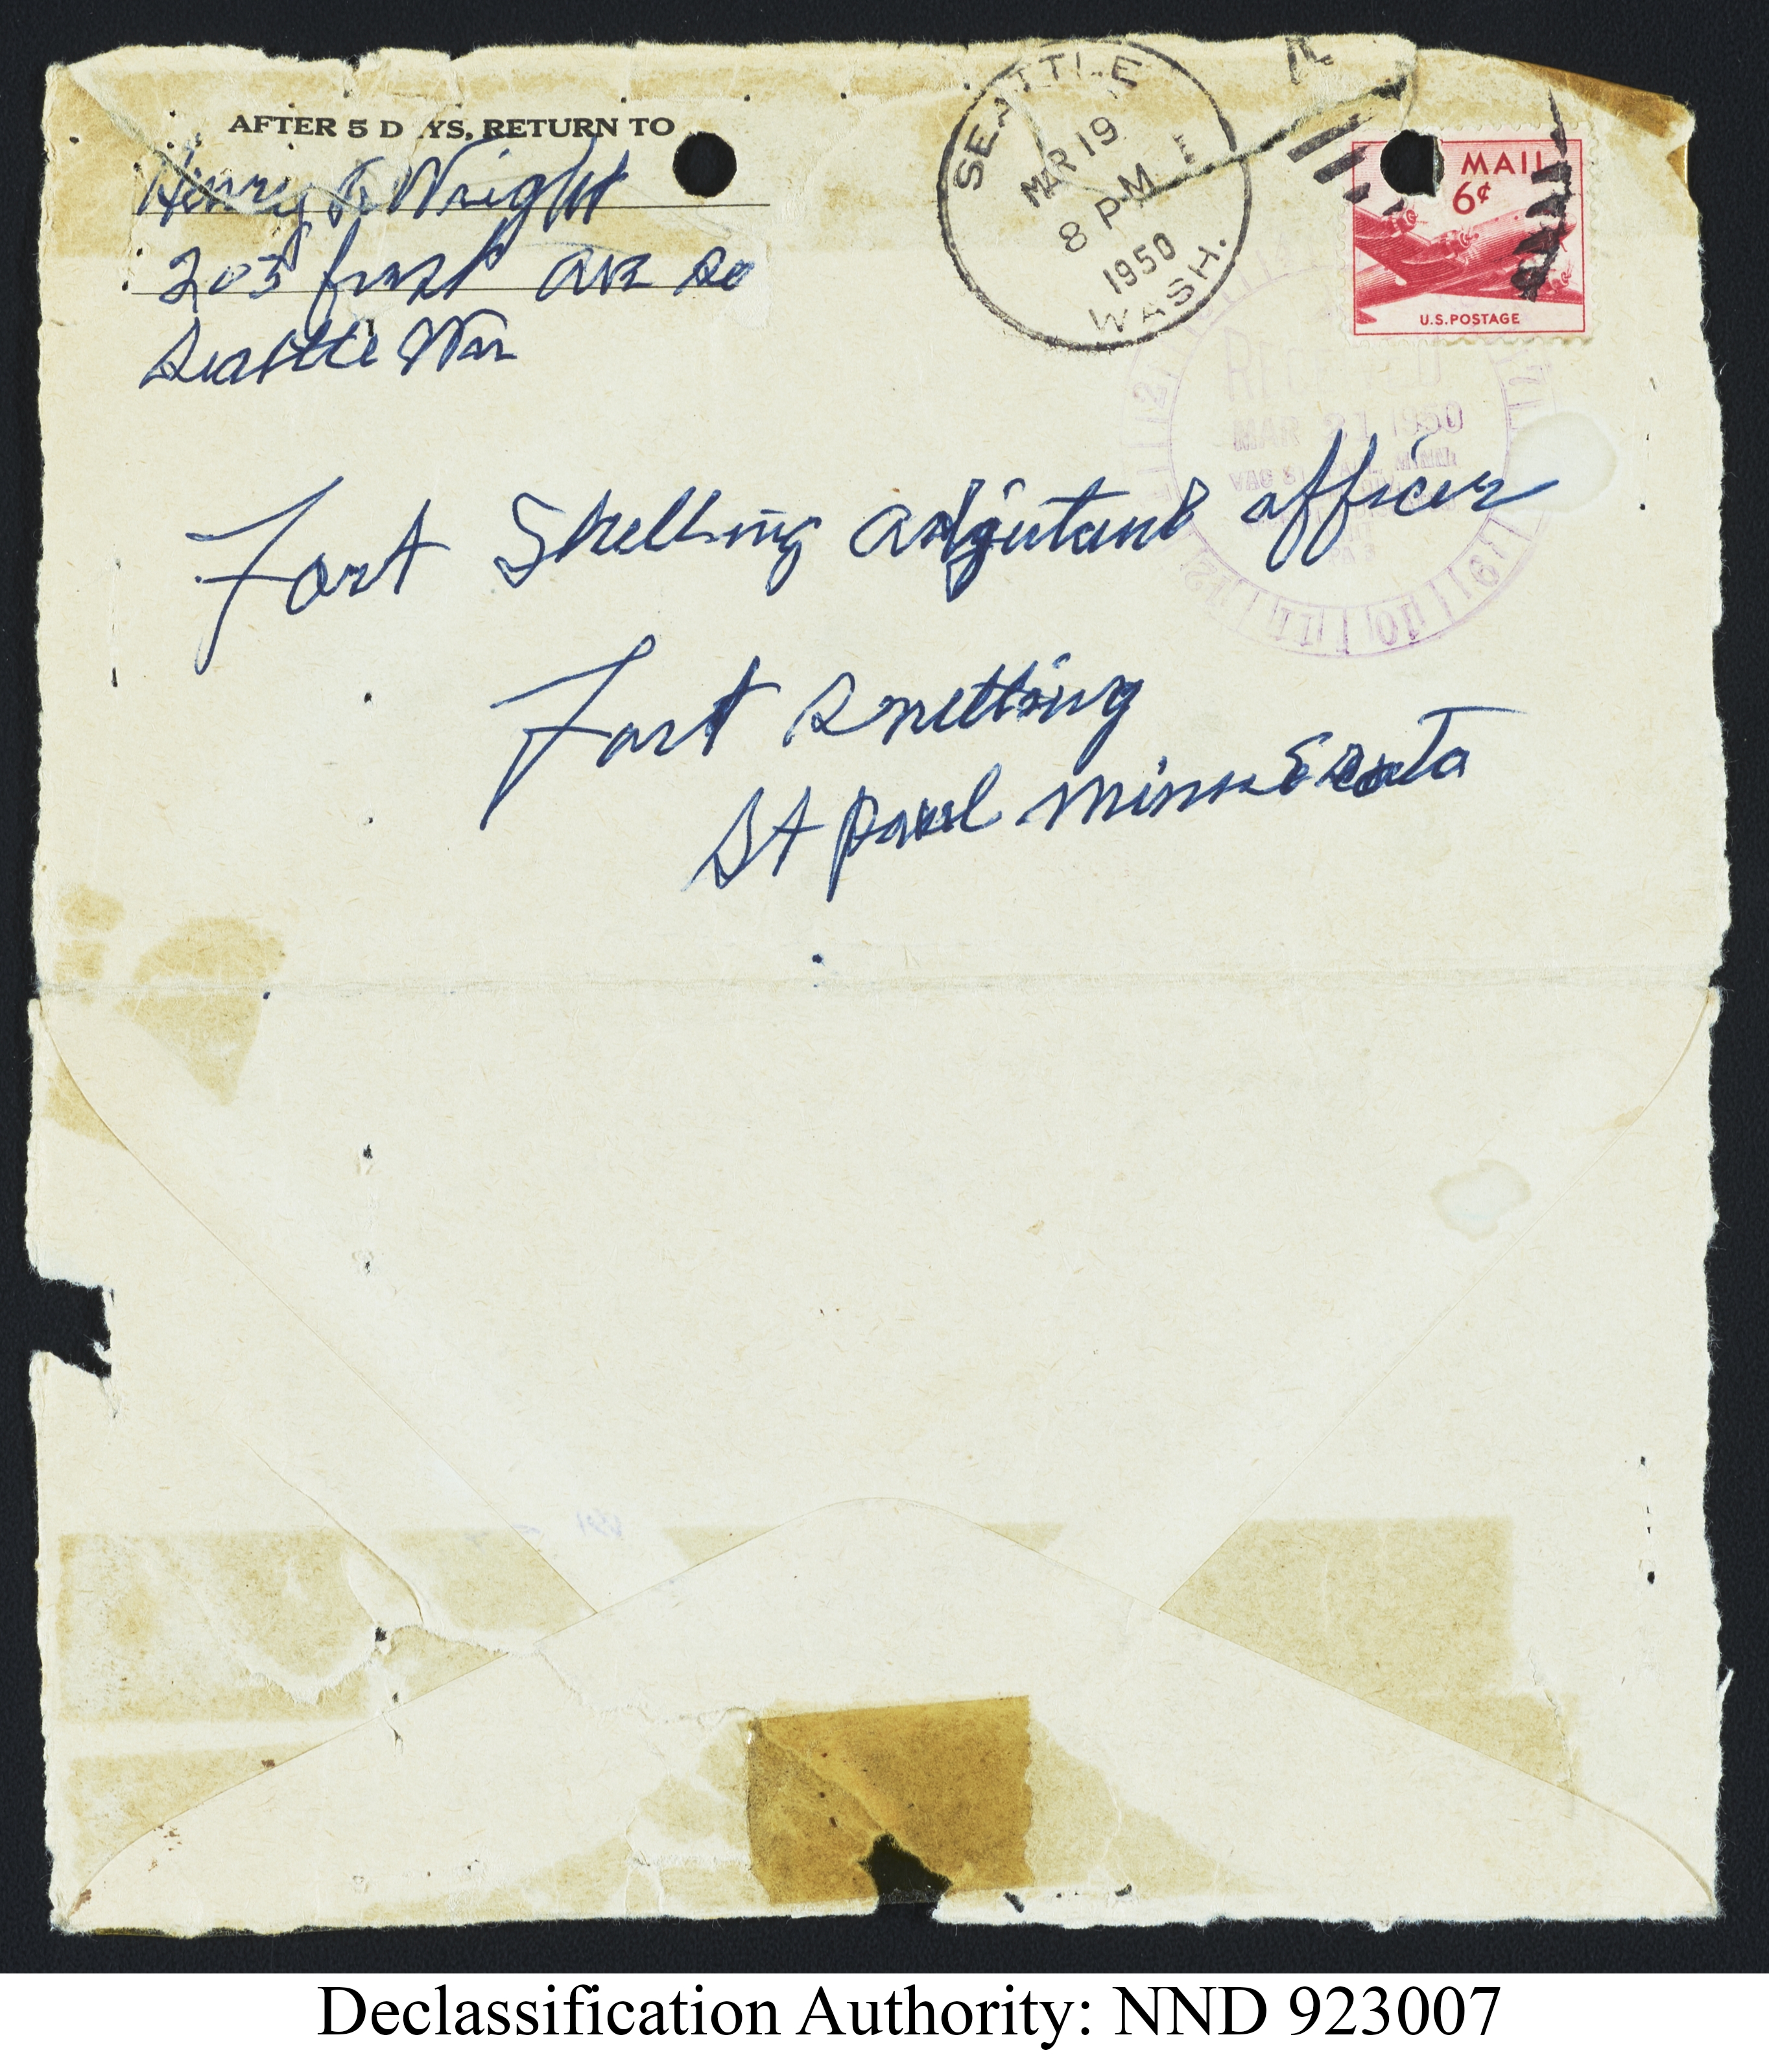 AFTER 5 D YS, RETURN TO
Henry Wright
203 first ave so
Seattle Wn
SEATTLE
MAR 19
8 PM
1950
WASH.
MAIL
6¢
U.S.POSTAGE
MAR 21 1950
Fort Snelling adjutant officer
Fort Snelling
St paul minnesota
Declassification Authority: NND 923007